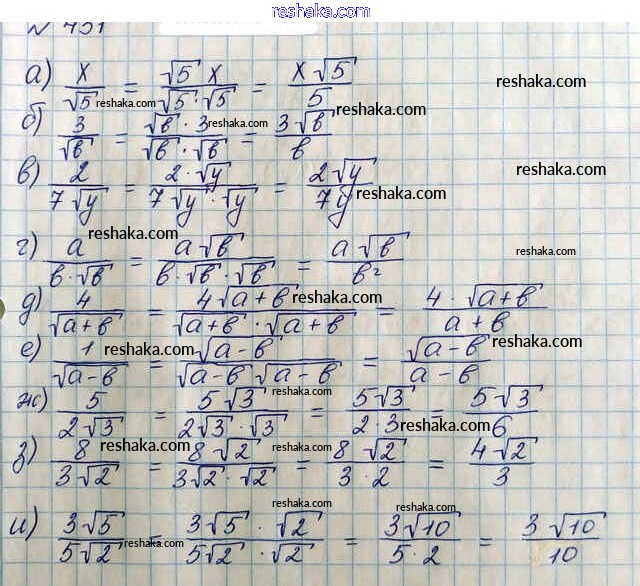 reshaka.com
№ 431
а) x/√5 = √5 x/(√5·√5) = x√5/5 reshaka.com reshaka.com
б) 3/√b = √b·3/(√b·√b) = 3√b/b reshaka.com reshaka.com reshaka.com
в) 2/(7√y) = 2·√y/(7√y·√y) = 2√y/(7y) reshaka.com reshaka.com reshaka.com
г) a/(b·√b) = a√b/(b·√b·√b) = a√b/b² reshaka.com reshaka.com
д) 4/√(a+b) = 4√(a+b)/(√(a+b)·√(a+b)) = 4·√(a+b)/(a+b) reshaka.com
е) 1/√(a-b) = √(a-b)/(√(a-b)√(a-b)) = √(a-b)/(a-b) reshaka.com reshaka.com
ж) 5/(2√3) = 5√3/(2√3·√3) = 5√3/(2·3) = 5√3/6 reshaka.com reshaka.com
з) 8/(3√2) = 8√2/(3√2·√2) = 8√2/(3·2) = 4√2/3 reshaka.com reshaka.com reshaka.com
reshaka.com reshaka.com
и) 3√5/(5√2) = 3√5·√2/(5√2·√2) = 3√10/(5·2) = 3√10/10 reshaka.com
reshaka.com